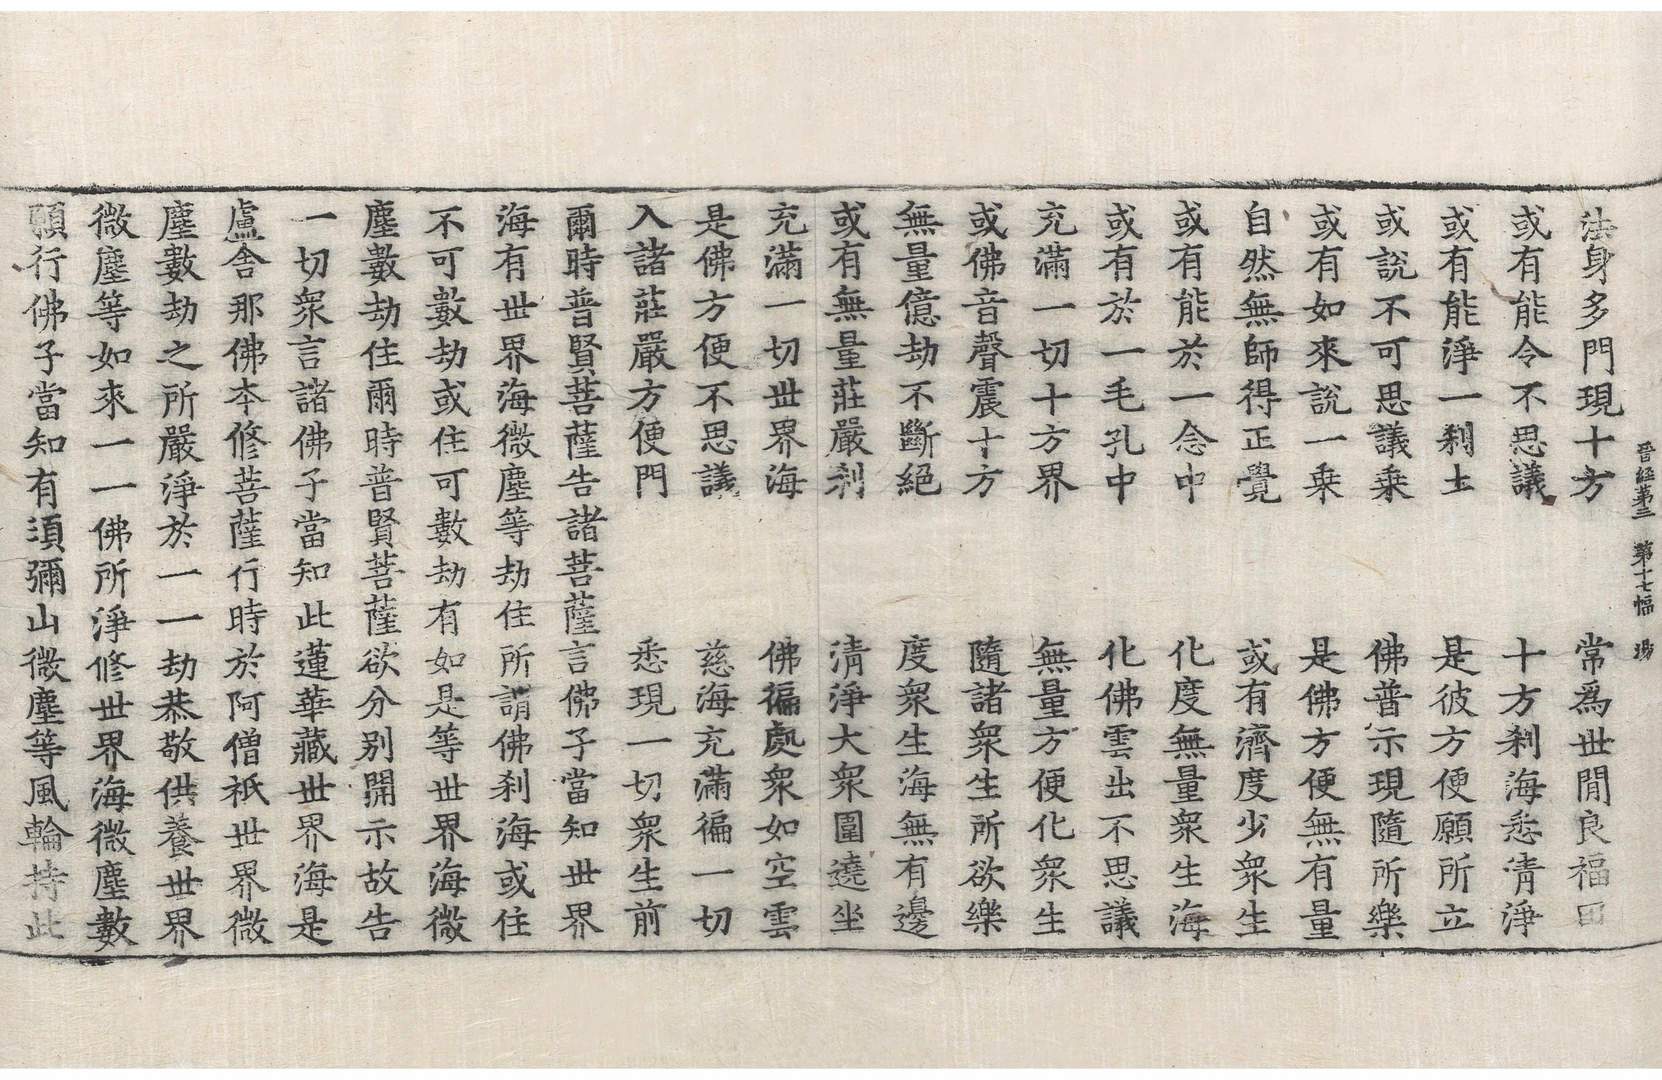 晉經第三 第十七幅 場
法身多門現十方 常為世閒良福田
或有能令不思議 十方刹海悉清淨
或有能淨一刹土 是彼方便願所立
或說不可思議乗 佛普示現隨所樂
或有如來說一乗 是佛方便無有量
自然無師得正覺 或有濟度少衆生
或有能於一念中 化度無量衆生海
或有於一毛孔中 化佛雲出不思議
充滿一切十方界 無量方便化衆生
或佛音聲震十方 隨諸衆生所欲樂
無量億劫不斷絕 度衆生海無有邊
或有無量莊嚴刹 清淨大衆圍遶坐
充滿一切世界海 佛徧處衆如空雲
是佛方便不思議 慈海充滿徧一切
入諸莊嚴方便門 悉現一切衆生前
爾時普賢菩薩告諸菩薩言佛子當知世界
海有世界海微塵等劫住所謂佛刹海或住
不可數劫或住可數劫有如是等世界海微
塵數劫住爾時普賢菩薩欲分別開示故告
一切衆言諸佛子當知此蓮華藏世界海是
盧舍那佛本修菩薩行時於阿僧祇世界微
塵數劫之所嚴淨於一一劫恭敬供養世界
微塵等如來一一佛所淨修世界海微塵數
願行佛子當知有須彌山微塵等風輪持此